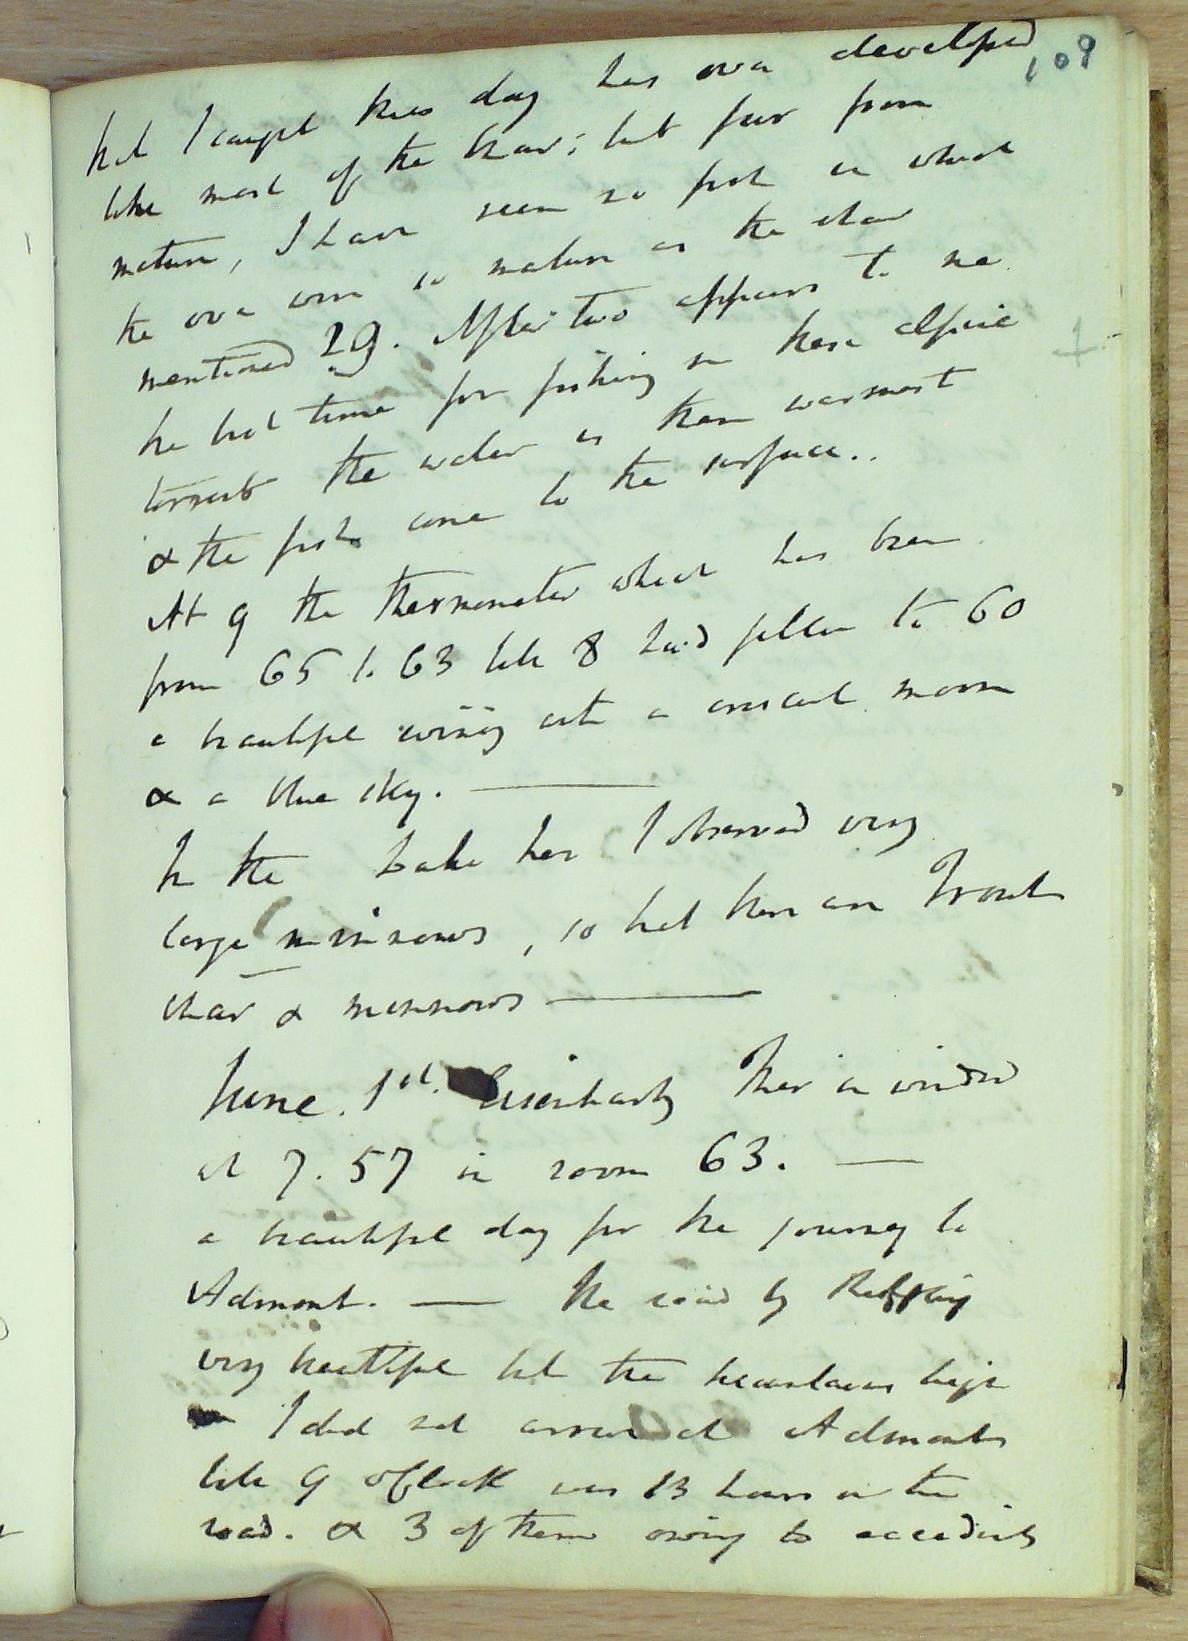 109
that I caught this day has ova developed
like most of the Char; but far from
mature, I have seen no fish in which
the ova were so mature as the char
mentioned 29. After two appears to me
the best time for fishing in these alpine
torrents the water is then warmest
& the fish come to the surface..
At 9 the thermometer which has been
from 65 to 63 till 8 had fallen to 60
a beautiful evening with a crescent moon
& a blue sky. —
In the Lake here I observed very
large minnows, so that there are Trout
char & minnows —
June. 1st. Ther in window
at 7. 57 in room 63. —
a beautiful day for the journey to
Admont. — the road by
very beautiful but the mountains high
I did not arrive at Admont
till 9 oClock was 13 hours on the
road. & 3 of them owing to accidents